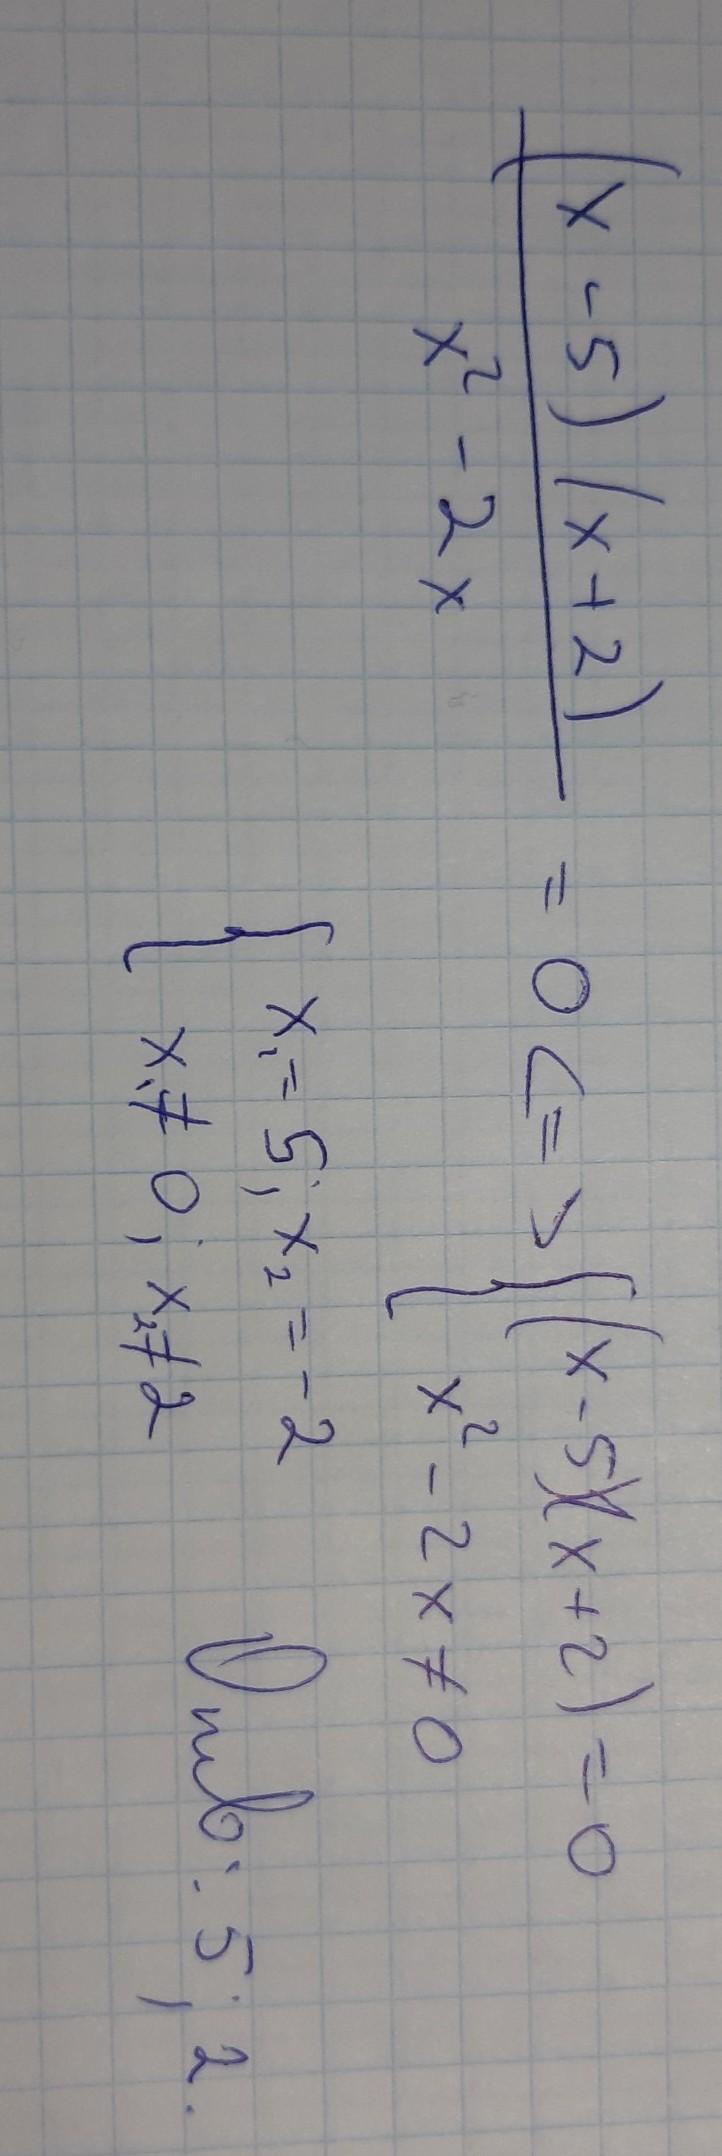 (x - 5)(x + 2)
x² - 2x
= 0 <=> { (x - 5)(x + 2) = 0
x² - 2x ≠ 0
{ x₁ = 5; x₂ = -2
x₁ ≠ 0; x₂ ≠ 2
Отв: 5; 2.